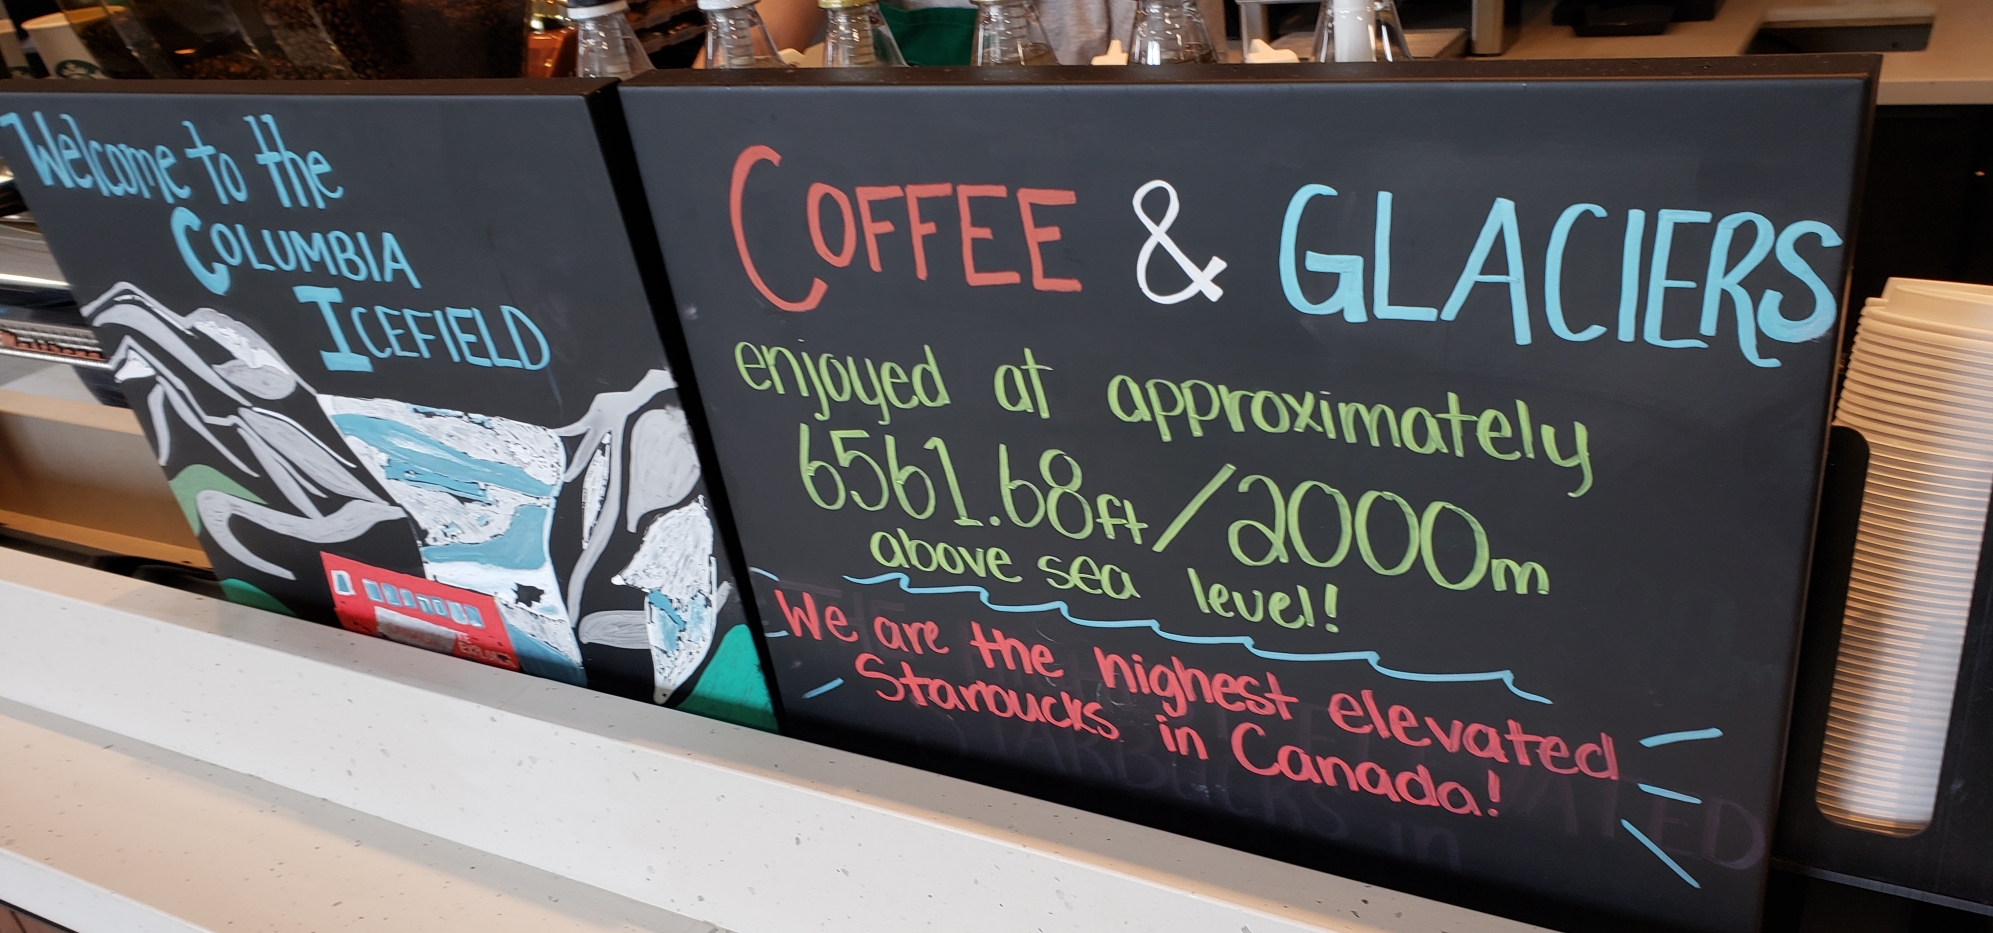 Welcome to the
COLUMBIA
ICEFIELD
COFFEE & GLACIERS
enjoyed at approximately
6561.68ft/2000m
above sea level!
We are the highest elevated
Starbucks in Canada!